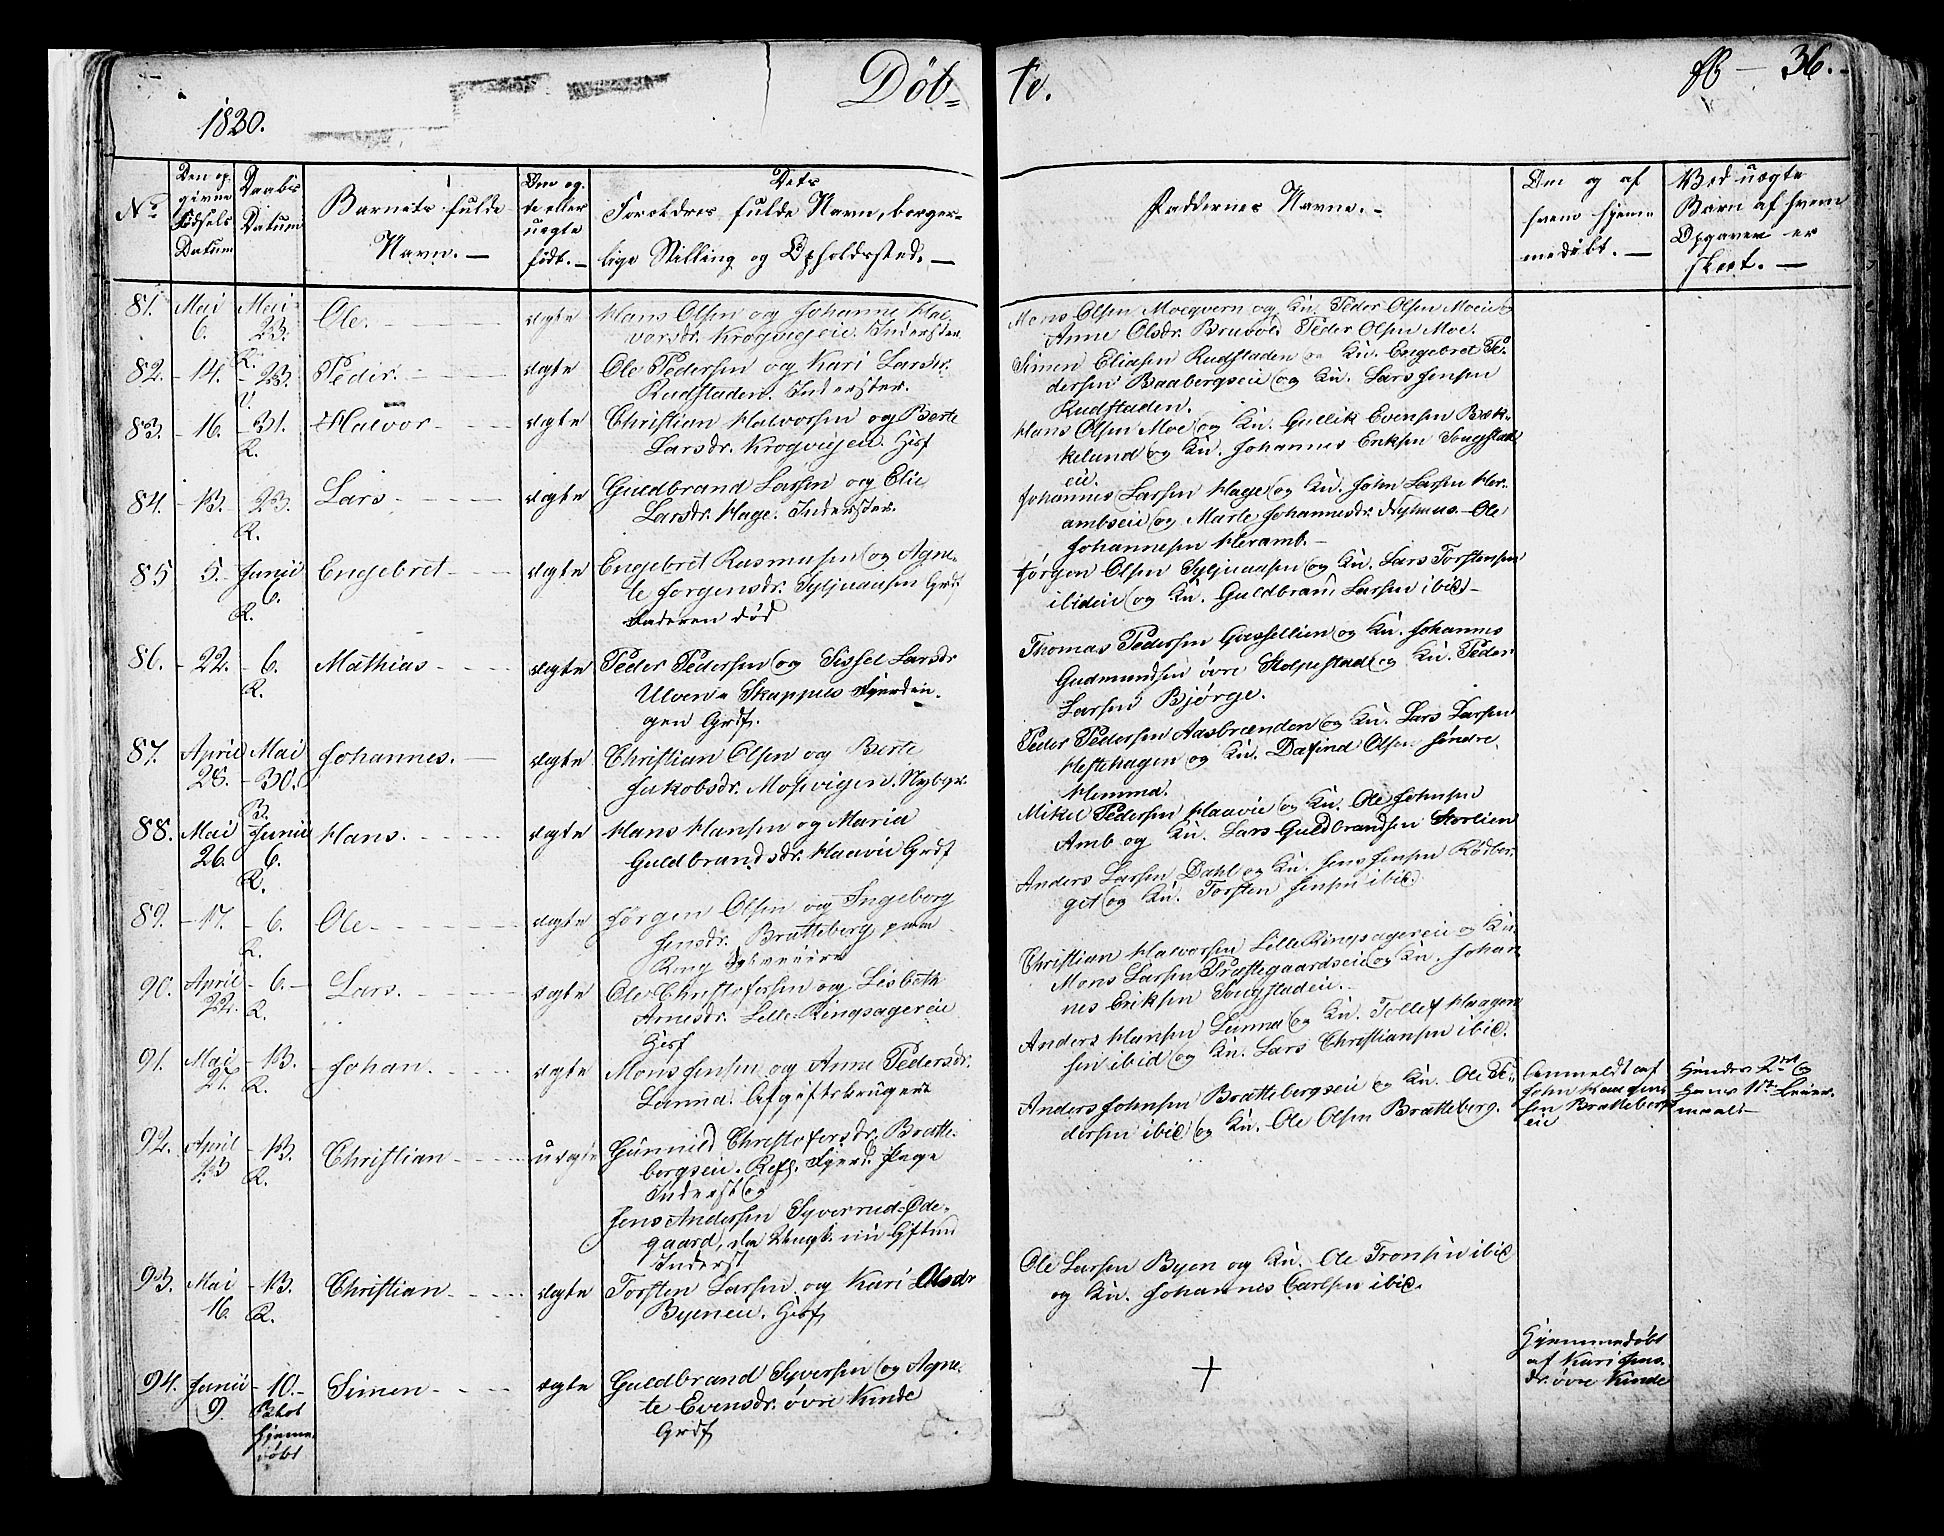 1830.
Døb=
te.
fb — 36.
No
Den op-
givne
Fødsels
Datum
Daabs
Datum
Barnets fulde
Navn. —
Om æg-
te eller
uægte
født. —
Dets
Forældres fulde Navn, borger-
lige Stilling og Opholdssted. —
Faddernes Navne. —
Om og af
hvem hjem-
medøbt. —
Ved uægte
Børn af hvem
Opgaven er
skeet. —
81. Mai 6. Mai 23. R. Ole. ægte
Hans Olsen og Johanne Hal-
vorsdr. Krogvigeie. Inderster
Mons Olsen Moeqvern og Ku. Peder Olsen Moeie
Anne Olsdr. Bruvold. Peder Olsen Moe.
82. - 14. - 23. Peder. ægte
Ole Pedersen og Kari Larsdr.
Rudstaden. Inderster.
Simen Eliasen Rudstaden og Ku. Engebret Pe-
dersen Baabergseie og Ku. Lars Jensen
Rudstaden.
83. - 16. - 31. R. Halvor ægte
Christian Halvorsen og Berte
Larsdr. Krogvigeie. Husf
Hans Olsen Moe og Ku. Gullik Evensen Bæk-
kelund og Ku. Johannes Eriksen Tougstad
eie.
84. - 13. 23. R. Lars. ægte
Guldbrand Larsen og Elie
Larsdr. Hage. Inderster.
Johannes Larsen Hage og Ku. John Larsen Her-
ambseie og Marte Johannesdr. Nyhuus. - Ole
Johannesen Heramb. -
85 5. Junii 6. R. Engebret ægte
Engebret Rasmusen og Agne-
te Jørgensdr. Syljuaasen Grdf
Faderen død
Jørgen Olsen Syljuaasen og Ku. Lars Torstensen
ibideie og Ku. Guldbrand Larsen ibid -
86. - 22. - 6. R. Mathias ægte
Peder Pedersen og Sissel Larsdr
Ulven Skappels Fjerdin-
gen Grdf.
Thomas Pedersen Gaassellien og Ku. Johannes
Gudmundsen øvre Stolpestad og Ku. Peder
Larsen Bjørge.
87. April 28. Mai - 30. B. Johannes. ægte
Christian Olsen og Berte
Jakobsdr. Mosvigen. Nybgr.
Peder Pedersen Aasbrænden og Ku. Lars Larsen
Hestehagen og Ku. Dafind Olsen søndre
Hemma.
88. Mai 26. Junii 6. R. Hans. ægte
Hans Hansen og Maria
Guldbrandsdr. Haavie Grdf
Mikel Pedersen Haavie og Ku. Ole Johnsen
Amb og Ku. Lars Guldbrandsen Storlien
89. - 17. - 6. R. Ole ægte
Jørgen Olsen og Ingeborg
Jensdr. Bratteberg paa
Ring Selveiere
Anders Larsen Dahl og Ku. Jens Jensen Rødber-
get og Ku. Torsten Jensen ibid
90. April 22. - 6. R. Lars. ægte
Ole Christofersen og Lisbeth
Arnesdr. Lille-Ringsagereie
Husf
Christian Halvorsen Lille Ringsagereie og Ku.
Mons Larsen Præstegaardseie og Ku. Johan-
nes Eriksen Tougstadeie.
91. Mai 27. - 13. R. Johan. ægte
Mons Jensen og Anne Pedersdr.
Lunna. Afgiftsbrugere
Anders Hansen Lunna og Ku. Tollef Haagen-
sen ibid og Ku. Lars Christiansen ibid.
92. April 23 - 13. R. Christian uægte
Gunnild Christofersdr. Bratte-
bergseie. Inderst og
Jens Andersen Syverrud-Øde-
gaard, Inderst
Anders Johnsen Brattebergseie og Ku. Ole Pe-
dersen ibid og Ku. Ole Olsen Bratteberg.
Anmeldt af
John
sen Brattebergs
eie
Hendes 2det og
Hans 1ste Leier-
maal
93. Mai 16. - 13. R. Christian ægte
Torsten Larsen og Kari Olsdr
Byeneie. Husf
Ole Larsen Byen og Ku. Ole Tronsen ibid
og Ku. Johannes Carlsen ibid.
94. Junii 9. - 10. - Hjemme-
døbt Simen ægte
Guldbrand Syversen og Agne-
te Evensdr. øvre Kinde
Grdf
Hjemmedøbt
af Kari Jens-
dr. øvre Kinde